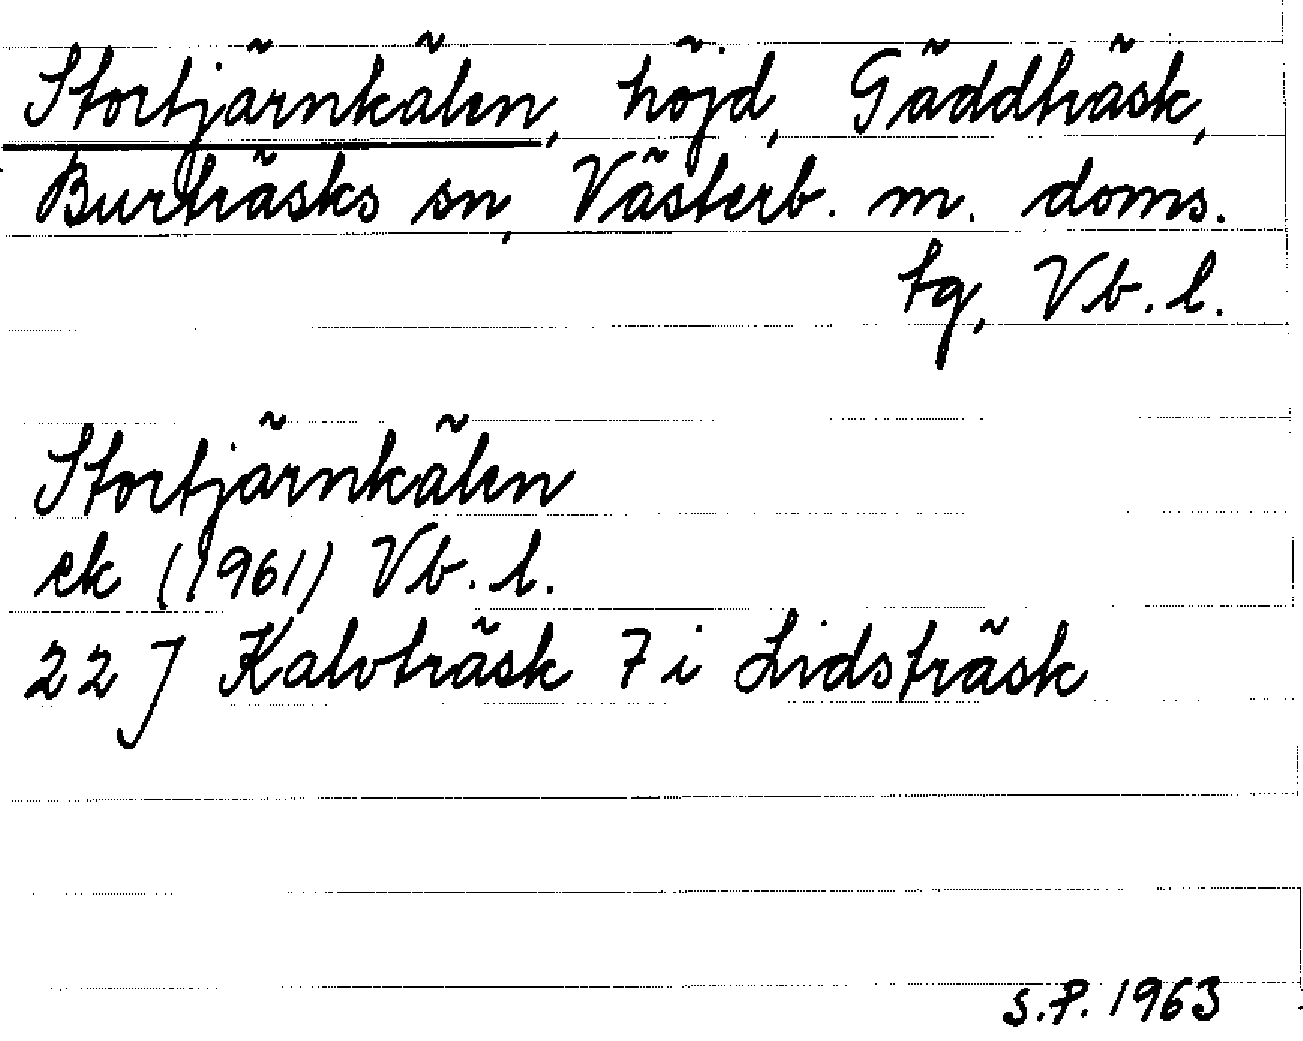 Stortjärnkälen, höjd, Gäddträsk,
Burträsks sn, Västerb. m. doms.
tg, Vb. l.
Stortjärnkälen
ek (1961) Vb. l.
22 J Kalvträsk 7 i Lidsträsk
S.P. 1963